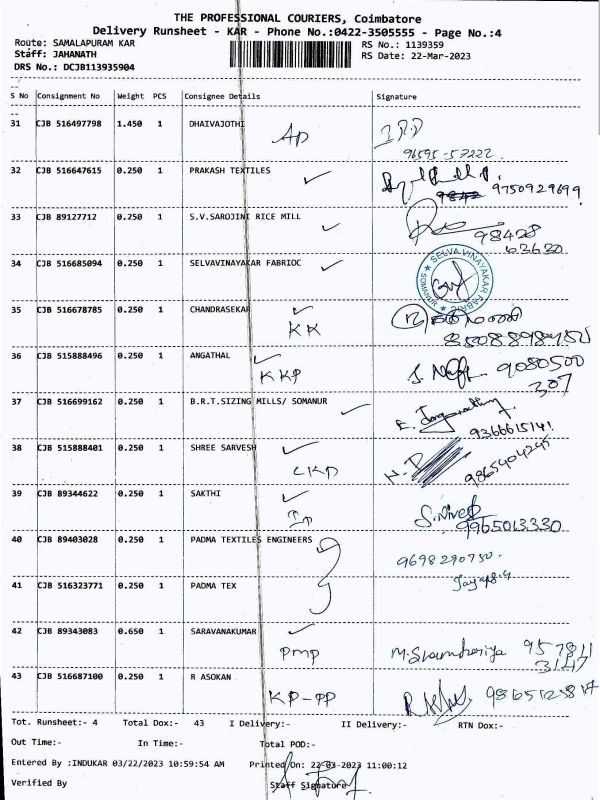 THE PROFESSIONAL COURIERS, Coimbatore
Delivery Runsheet - KAR - Phone No.:0422-3505555 - Page No.:4
Route: SAMALAPURAM KAR
RS No.: 1139359
Staff: JAHANATH
RS Date: 22-Mar-2023
DRS No.: DCJB113935904
S No Consignment No Weight PCS Consignee Details Signature
31 CJB 516497798 1.450 1 DHAIVAJOTHI AP
96595-57222
32 CJB 516647615 0.250 1 PRAKASH TEXTILES
9750929699
33 CJB 89127712 0.250 1 S.V.SAROJINI RICE MILL
98428
63630
34 CJB 516685094 0.250 1 SELVAVINAYAKAR FABRIOC
SELVA VINAYAKAR FABRIC SOMANUR
35 CJB 516678785 0.250 1 CHANDRASEKAR
KK
36 CJB 515888496 0.250 1 ANGATHAL
KKP
9080500
307
37 CJB 516699162 0.250 1 B.R.T.SIZING MILLS/ SOMANUR
9366615141
38 CJB 515888401 0.250 1 SHREE SARVESH
CKP
9865404245
39 CJB 89344622 0.250 1 SAKTHI
S.Nivesh
9965013330
40 CJB 89403028 0.250 1 PADMA TEXTILES ENGINEERS
9698290750.
41 CJB 516323771 0.250 1 PADMA TEX
42 CJB 89343083 0.650 1 SARAVANAKUMAR
PMP
957811
3147
43 CJB 516687100 0.250 1 R ASOKAN
KP-PP
Tot. Runsheet:- 4 Total Dox:- 43 I Delivery:- II Delivery:- RTN Dox:-
Out Time:- In Time:- Total POD:-
Entered By :INDUKAR 03/22/2023 10:59:54 AM Printed On: 22-03-2023 11:00:12
Verified By Staff Signature